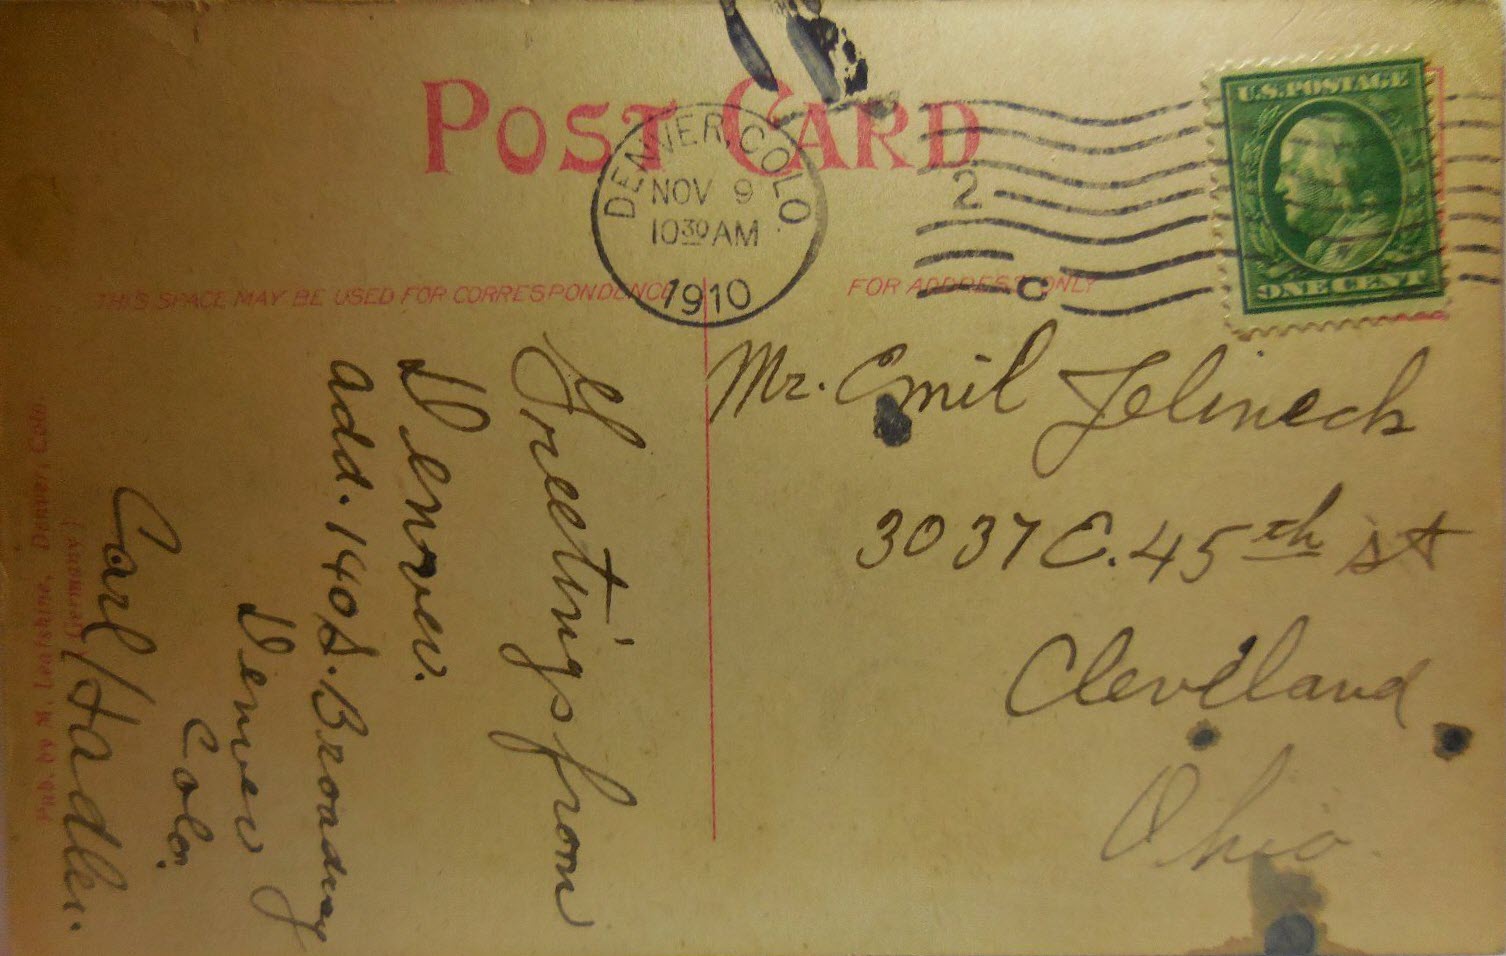 POST CARD
DENVER, COLO.
NOV 9
10 30 AM
1910
2
C
U.S. POSTAGE
ONE CENT
THIS SPACE MAY BE USED FOR CORRESPONDENCE
FOR ADDRESS ONLY
Greetings from
Denver.
add. 140 S. Broadway
Denver
Colo.
Carl Hadler.
Mr. Emil Jelineck
3037 E. 45th St
Cleveland
Ohio
Pub. by M. Leafshine, Denver, Colo.
(Germany)